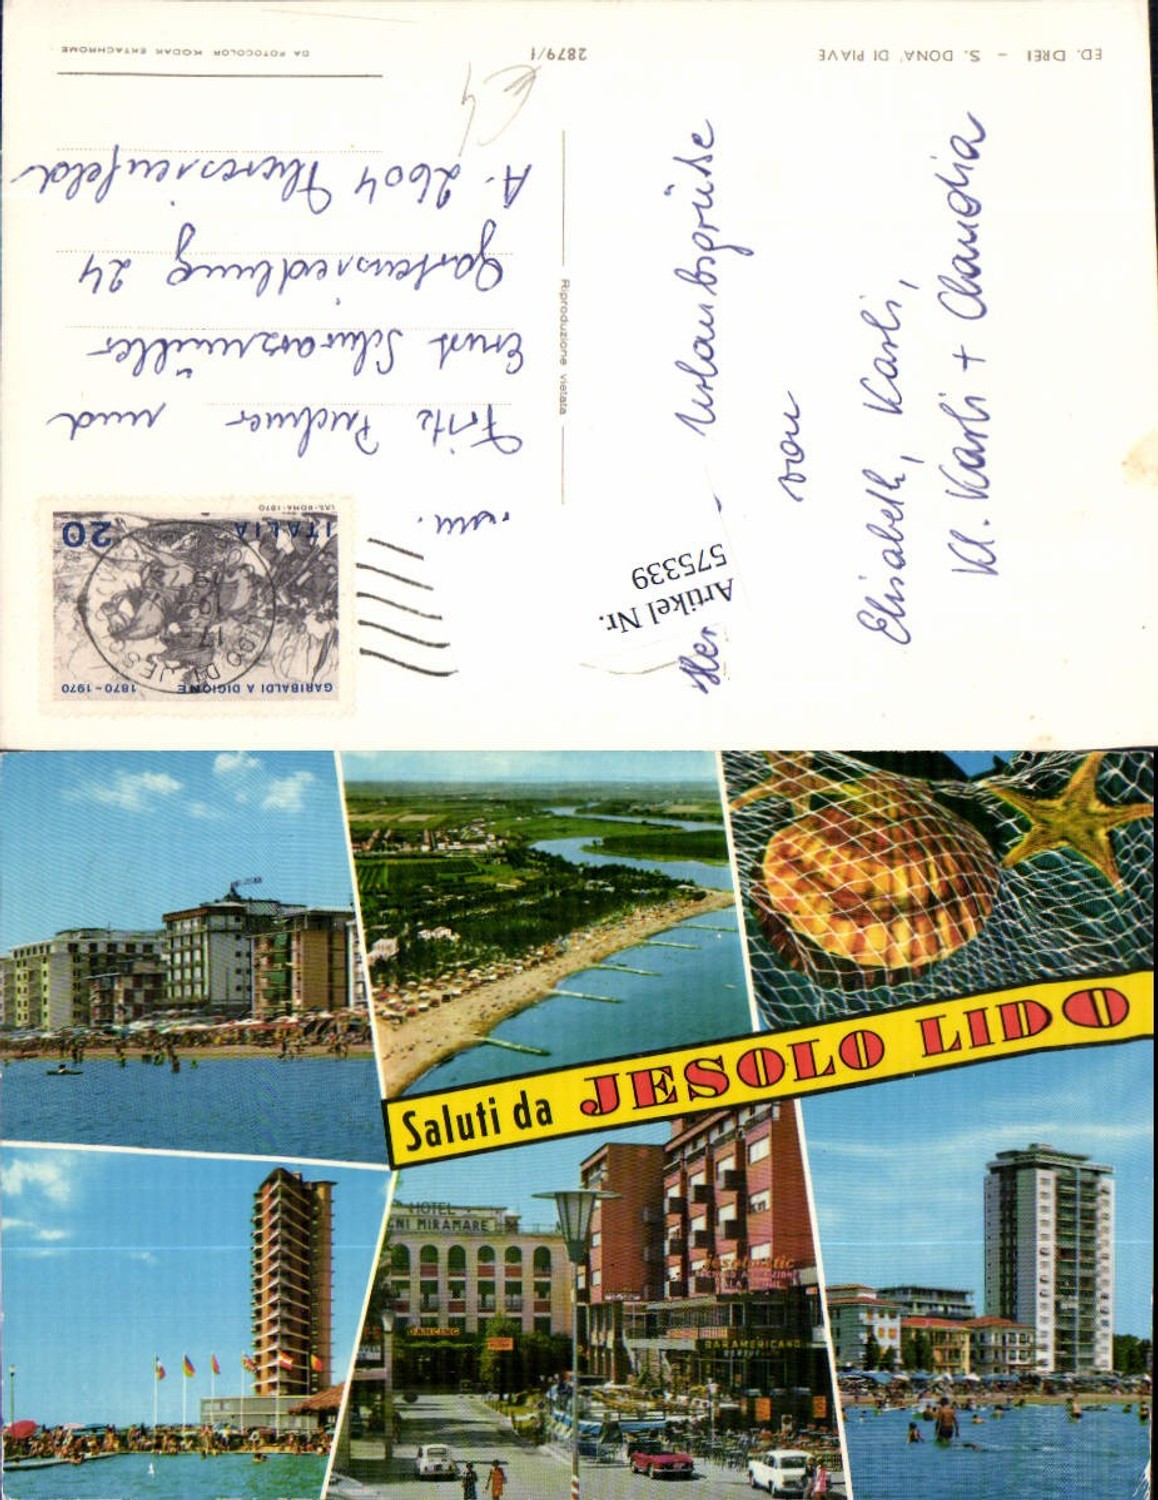 ED. DREI - S. DONA' DI PIAVE
2879/f
DA FOTOCOLOR KODAK EKTACHROME
Urlaubsgrüße
von
Elisabeth, Karli,
Kl. Karli + Claudia
Artikel Nr.
575339
Riproduzione vietata
€ 4
GARIBALDI A DIGIONE 1870-1970
ITALIA 20
I.P.S.-ROMA-1970
LIDO DI JESOLO
17
Fritz und
Ernst Schwarzmüller
Gartensiedlung 24
A-2604 Theresienfeld
Saluti da JESOLO LIDO
HOTEL
MIRAMARE
DANCING
BAR AMERICANO